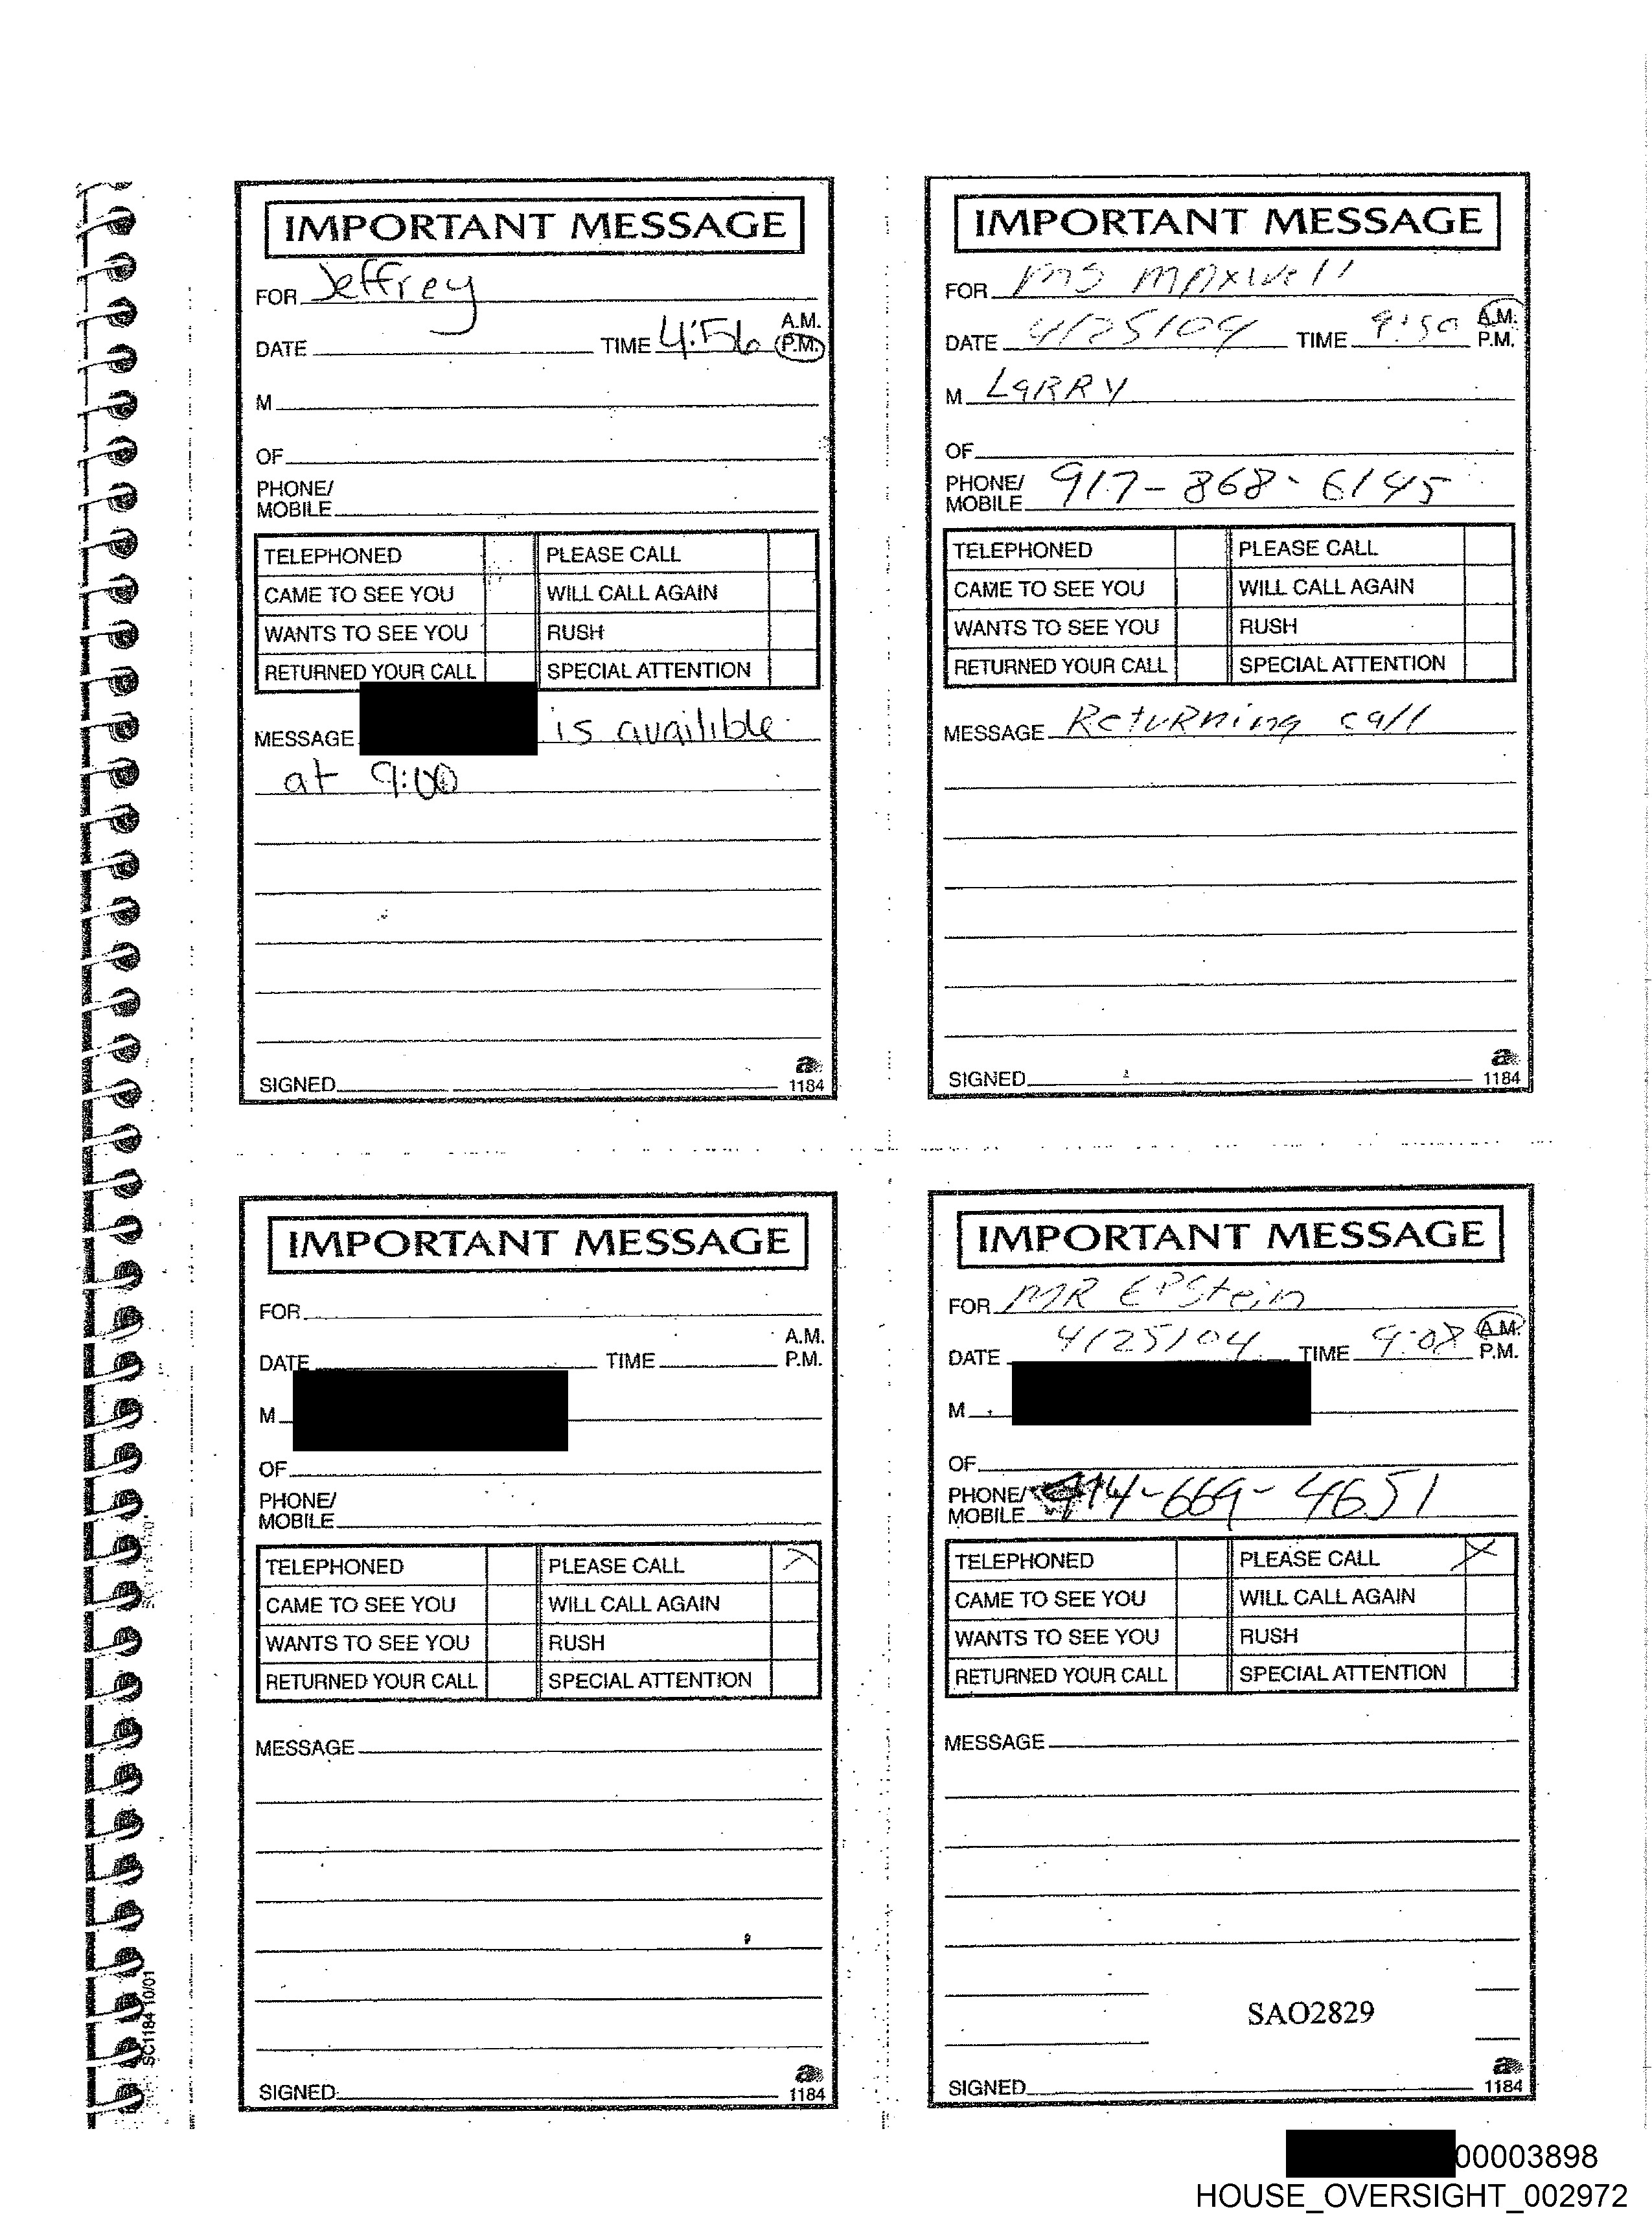 IMPORTANT MESSAGE
FOR Jeffrey
DATE TIME 4:56 A.M. P.M.
M
OF
PHONE/
MOBILE
TELEPHONED PLEASE CALL
CAME TO SEE YOU WILL CALL AGAIN
WANTS TO SEE YOU RUSH
RETURNED YOUR CALL SPECIAL ATTENTION
MESSAGE is availible
at 9:00
SIGNED
1184
IMPORTANT MESSAGE
FOR MS MAXWell
DATE 4/25/04 TIME 9:50 A.M. P.M.
M LARRY
OF
PHONE/
MOBILE 917-868-6145
TELEPHONED PLEASE CALL
CAME TO SEE YOU WILL CALL AGAIN
WANTS TO SEE YOU RUSH
RETURNED YOUR CALL SPECIAL ATTENTION
MESSAGE RetuRning call
SIGNED
1184
IMPORTANT MESSAGE
FOR
DATE TIME A.M. P.M.
M
OF
PHONE/
MOBILE
TELEPHONED PLEASE CALL X
CAME TO SEE YOU WILL CALL AGAIN
WANTS TO SEE YOU RUSH
RETURNED YOUR CALL SPECIAL ATTENTION
MESSAGE
SIGNED
1184
IMPORTANT MESSAGE
FOR MR EPStein
DATE 4/25/04 TIME 9:08 A.M. P.M.
M
OF
PHONE/
MOBILE 914-669-4651
TELEPHONED PLEASE CALL X
CAME TO SEE YOU WILL CALL AGAIN
WANTS TO SEE YOU RUSH
RETURNED YOUR CALL SPECIAL ATTENTION
MESSAGE
SAO2829
SIGNED
1184
SC1184 10/01
00003898
HOUSE_OVERSIGHT_002972